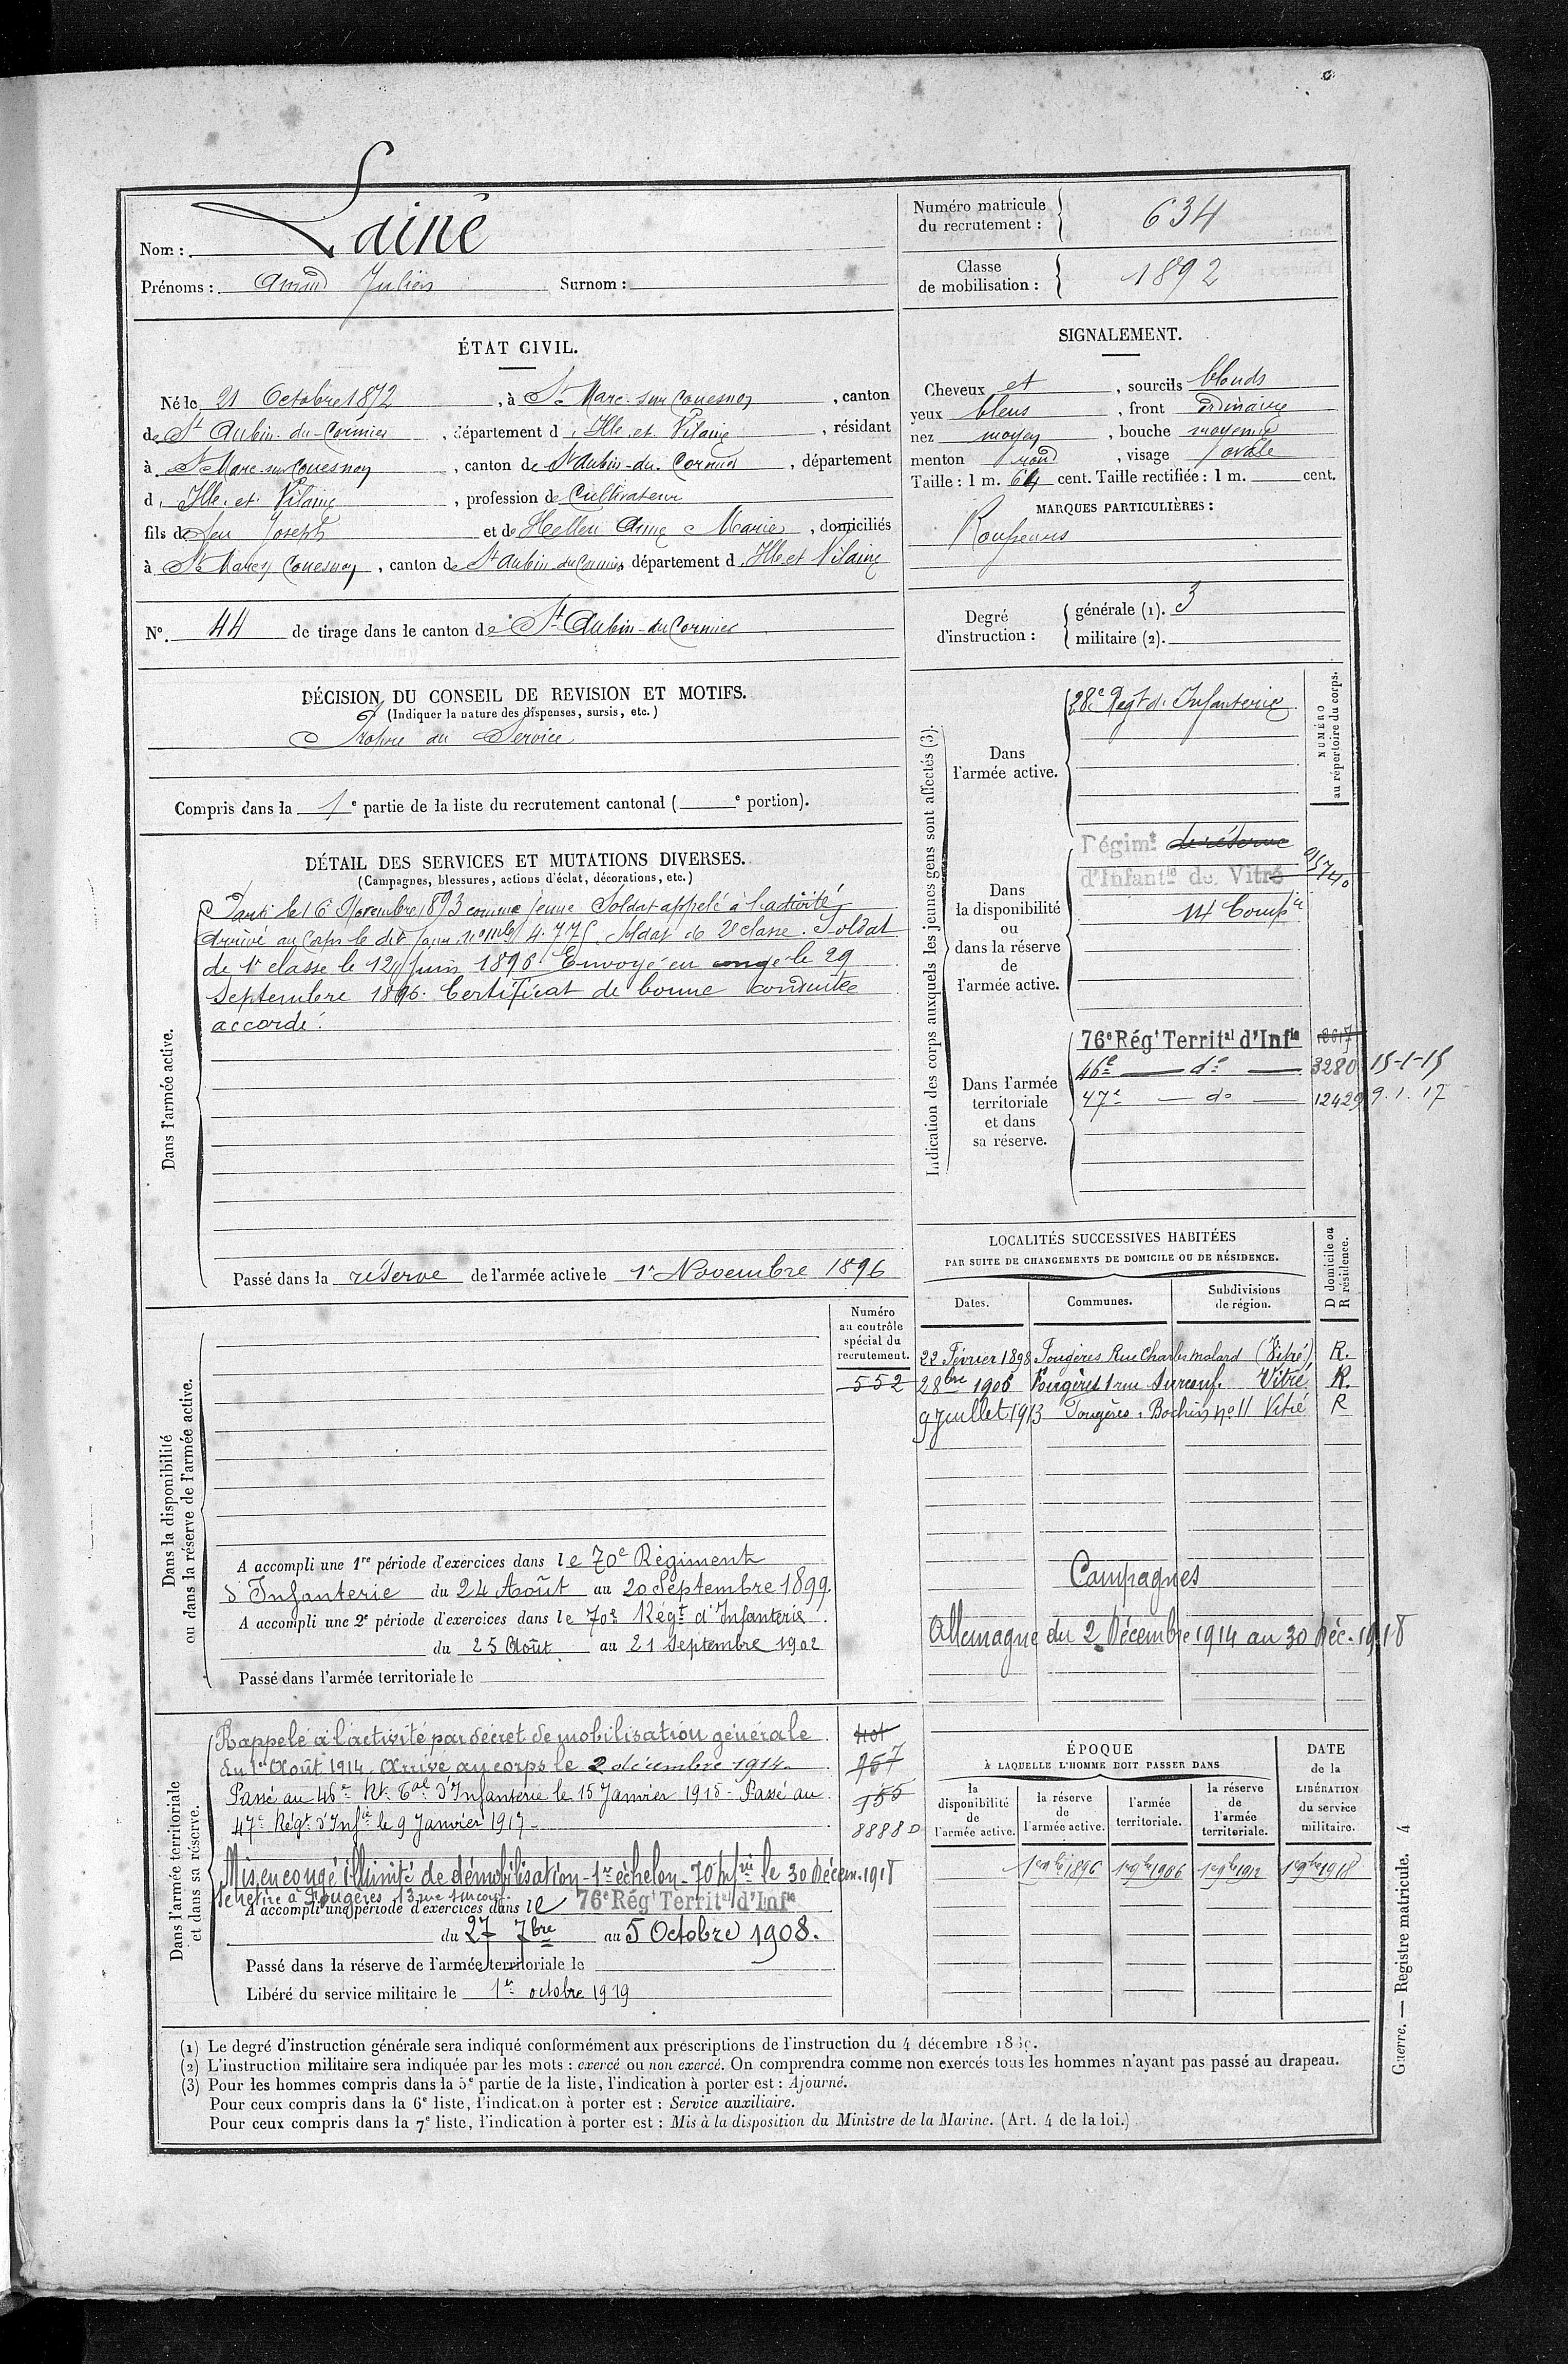 Nom : Lainé
Prénoms : Amand Julien Surnom :
Numéro matricule du recrutement : 634
Classe de mobilisation : 1892
ÉTAT CIVIL.
Né le 21 Octobre 1872, à St Marc-sur Couesnon, canton
de St Aubin-du-Cormier, département d'Ille et Vilaine, résidant
à St Marc-sur Couesnon, canton de St Aubin-du-Cormier, département
d'Ille et Vilaine, profession de Cultivateur
fils de feu Joseph et de Helleu Anne Marie, domiciliés
à St Marc s/ Couesnon, canton de St Aubin-du-Cormier, département d'Ille et Vilaine
N° 44 de tirage dans le canton de St Aubin-du-Cormier
SIGNALEMENT.
Cheveux et, sourcils blonds
yeux bleus, front ordinaire
nez moyen, bouche moyenne
menton rond, visage ovale
Taille : 1 m. 64 cent. Taille rectifiée : 1 m. cent.
MARQUES PARTICULIÈRES :
Degré d'instruction : générale (1). 3
militaire (2).
DÉCISION DU CONSEIL DE REVISION ET MOTIFS.
(Indiquer la nature des dispenses, sursis, etc.)
Propre au Service
Compris dans la 1e partie de la liste du recrutement cantonal ( e portion).
DÉTAIL DES SERVICES ET MUTATIONS DIVERSES.
(Campagnes, blessures, actions d'éclat, décorations, etc.)
Dans l'armée active.
Parti le 16 Novembre 1893 comme jeune Soldat appelé à l'activité
Arrivé au Corps le dit jour, no mle 4.775. Soldat de 2e classe. Soldat
de 1e classe le 12 Juin 1896. Envoyé en congé le 29
Septembre 1896. Certificat de bonne conduite
accordé.
Passé dans la réserve de l'armée active le 1er Novembre 1896
Indication des corps auxquels les jeunes gens sont affectés (3).
NUMÉRO au répertoire du corps.
Dans l'armée active.
28e Régt d'Infanterie
Dans la disponibilité ou dans la réserve de l'armée active.
Régimt de réserve
d'Infantie de Vitré
14 Compie
Dans l'armée territoriale et dans sa réserve.
76e Régt Territal d'Infie
46e — do — 3280 15-1-15
47e — do — 12429 9.1.17
LOCALITÉS SUCCESSIVES HABITÉES
PAR SUITE DE CHANGEMENTS DE DOMICILE OU DE RÉSIDENCE.
Dates. Communes. Subdivisions de région. D domicile ou R résidence.
22 Février 1898 Fougères Rue Charles Malard (Vitré) R.
28bre 1906 Fougères 1 rue Surcouf. Vitré R.
9 Juillet 1913 Fougères, Bochin no 11 Vitré R
Campagnes
Allemagne du 2 Décembre 1914 au 30 Déc. 1918
Dans la disponibilité ou dans la réserve de l'armée active.
Numéro au contrôle spécial du recrutement.
552
A accompli une 1re période d'exercices dans le 70e Régiment
d'Infanterie du 24 Août au 20 Septembre 1899.
A accompli une 2e période d'exercices dans le 70e Régt d'Infanterie
du 25 Août au 21 Septembre 1902
Passé dans l'armée territoriale le
Dans l'armée territoriale et dans sa réserve.
Rappelé à l'activité par décret de mobilisation générale
du 1er Août 1914. Arrivé au corps le 2 décembre 1914.
Passé au 46e Rt Tal d'Infanterie le 15 Janvier 1915 - Passé au
47e Régt d'Infie le 9 Janvier 1917-
8888 D
Mis en congé illimité de démobilisation - 1er échelon - 70 Infrie le 30 Décem. 1918
Se retire à Fougères 13 rue Surcouf.
A accompli une période d'exercices dans le 76e Régt Territal d'Infie
du 27 7bre au 5 Octobre 1908.
Passé dans la réserve de l'armée territoriale le
Libéré du service militaire le 1er octobre 1919
ÉPOQUE
À LAQUELLE L'HOMME DOIT PASSER DANS
la disponibilité de l'armée active. la réserve de l'armée active. l'armée territoriale. la réserve de l'armée territoriale.
DATE de la LIBÉRATION du service militaire.
1er 9bre 1896 1er 9bre 1906 1er 9bre 1912 1er 9bre 1918
(1) Le degré d'instruction générale sera indiqué conformément aux prescriptions de l'instruction du 4 décembre 1889.
(2) L'instruction militaire sera indiquée par les mots : exercé ou non exercé. On comprendra comme non exercés tous les hommes n'ayant pas passé au drapeau.
(3) Pour les hommes compris dans la 5e partie de la liste, l'indication à porter est : Ajourné.
Pour ceux compris dans la 6e liste, l'indication à porter est : Service auxiliaire.
Pour ceux compris dans la 7e liste, l'indication à porter est : Mis à la disposition du Ministre de la Marine. (Art. 4 de la loi.)
Guerre. — Registre matricule. 4